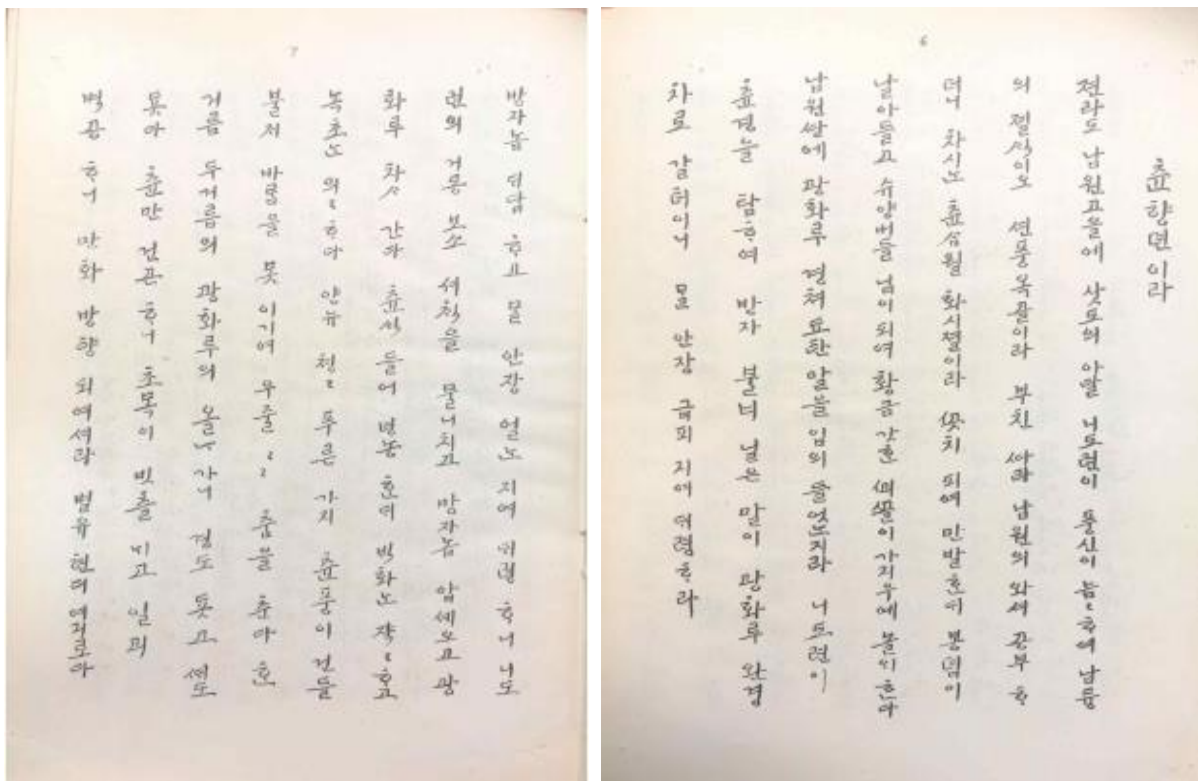 6
츈향뎐이라
젼라도 남원고을에 삿도의 아달 니도련이 풍신이 늠〃ᄒᆞ여 남듕
의 졀ᄉᆡᆨ이오 션풍옥골이라 부친 ᄯᅡ라 남원의 와셔 공부 ᄒᆞ
더니 차시ᄂᆞᆫ 츈삼월 화시졀이라 ᄭᅩᆺ치 피여 만발ᄒᆞᆫᄃᆡ 봉뎝이
날아들고 슈양버들 님이 되여 황금 갓ᄒᆞᆫ ᄭᅬᄭᅩᆯ이 가지우에 올의ᄒᆞᆫ다
남원ᄯᅡᆼ에 광화루 경쳐 됴탄 말을 입의 들엇도지라 니도련이
츈경을 탐ᄒᆞ여 방자 불너 닐은 말이 광화루 완경
차로 갈터이니 말 안장 급피 지여 ᄃᆡ령ᄒᆞ라
7
방자놈 ᄃᆡ답 ᄒᆞ고 말 안장 얼는 지여 ᄃᆡ령 ᄒᆞ니 니도
련의 거동 보소 셔칙을 물니치고 방자놈 압셰오고 광
화루 차자 간다 츈ᄉᆡᆨ 들어 면뇽 ᄒᆞᆫᄃᆡ ᄇᆡᆨ화는 작〃ᄒᆞ고
녹초ᄂᆞᆫ 의〃ᄒᆞ다 양뉴 쳥〃 푸른 가지 츈풍이 건들
불져 바람을 못 이기여 우줄〃 춤을 춘다 ᄒᆞᆫ
거름 두거름의 광화루의 올나 가니 경도 둇고 셰도
둇다 츈만 건곤 ᄒᆞ니 초목이 빗츨 ᄯᅴ고 일긔
벽공 ᄒᆞ니 만화 방향 되여셔라 별유 텬의 여긔로다